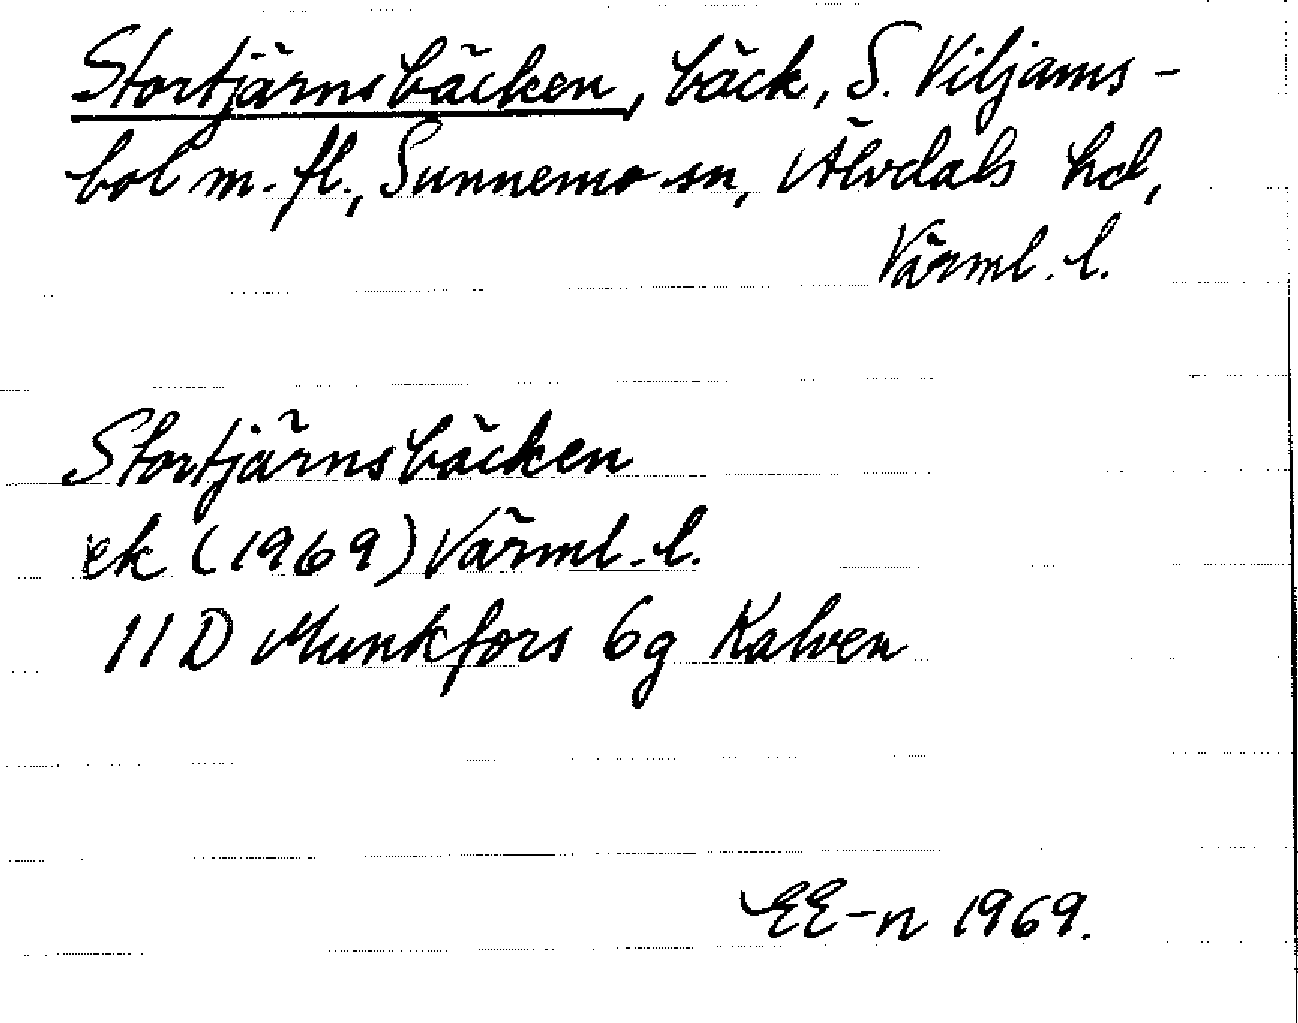 Stortjärnsbäcken, bäck, S. Viljams-
bol m. fl., Sunnemo sn, Älvdals hd,
Värml. l.
Stortjärnsbäcken
ek (1969) Värml. l.
11D Munkfors 6g Kalven
EE-n 1969.